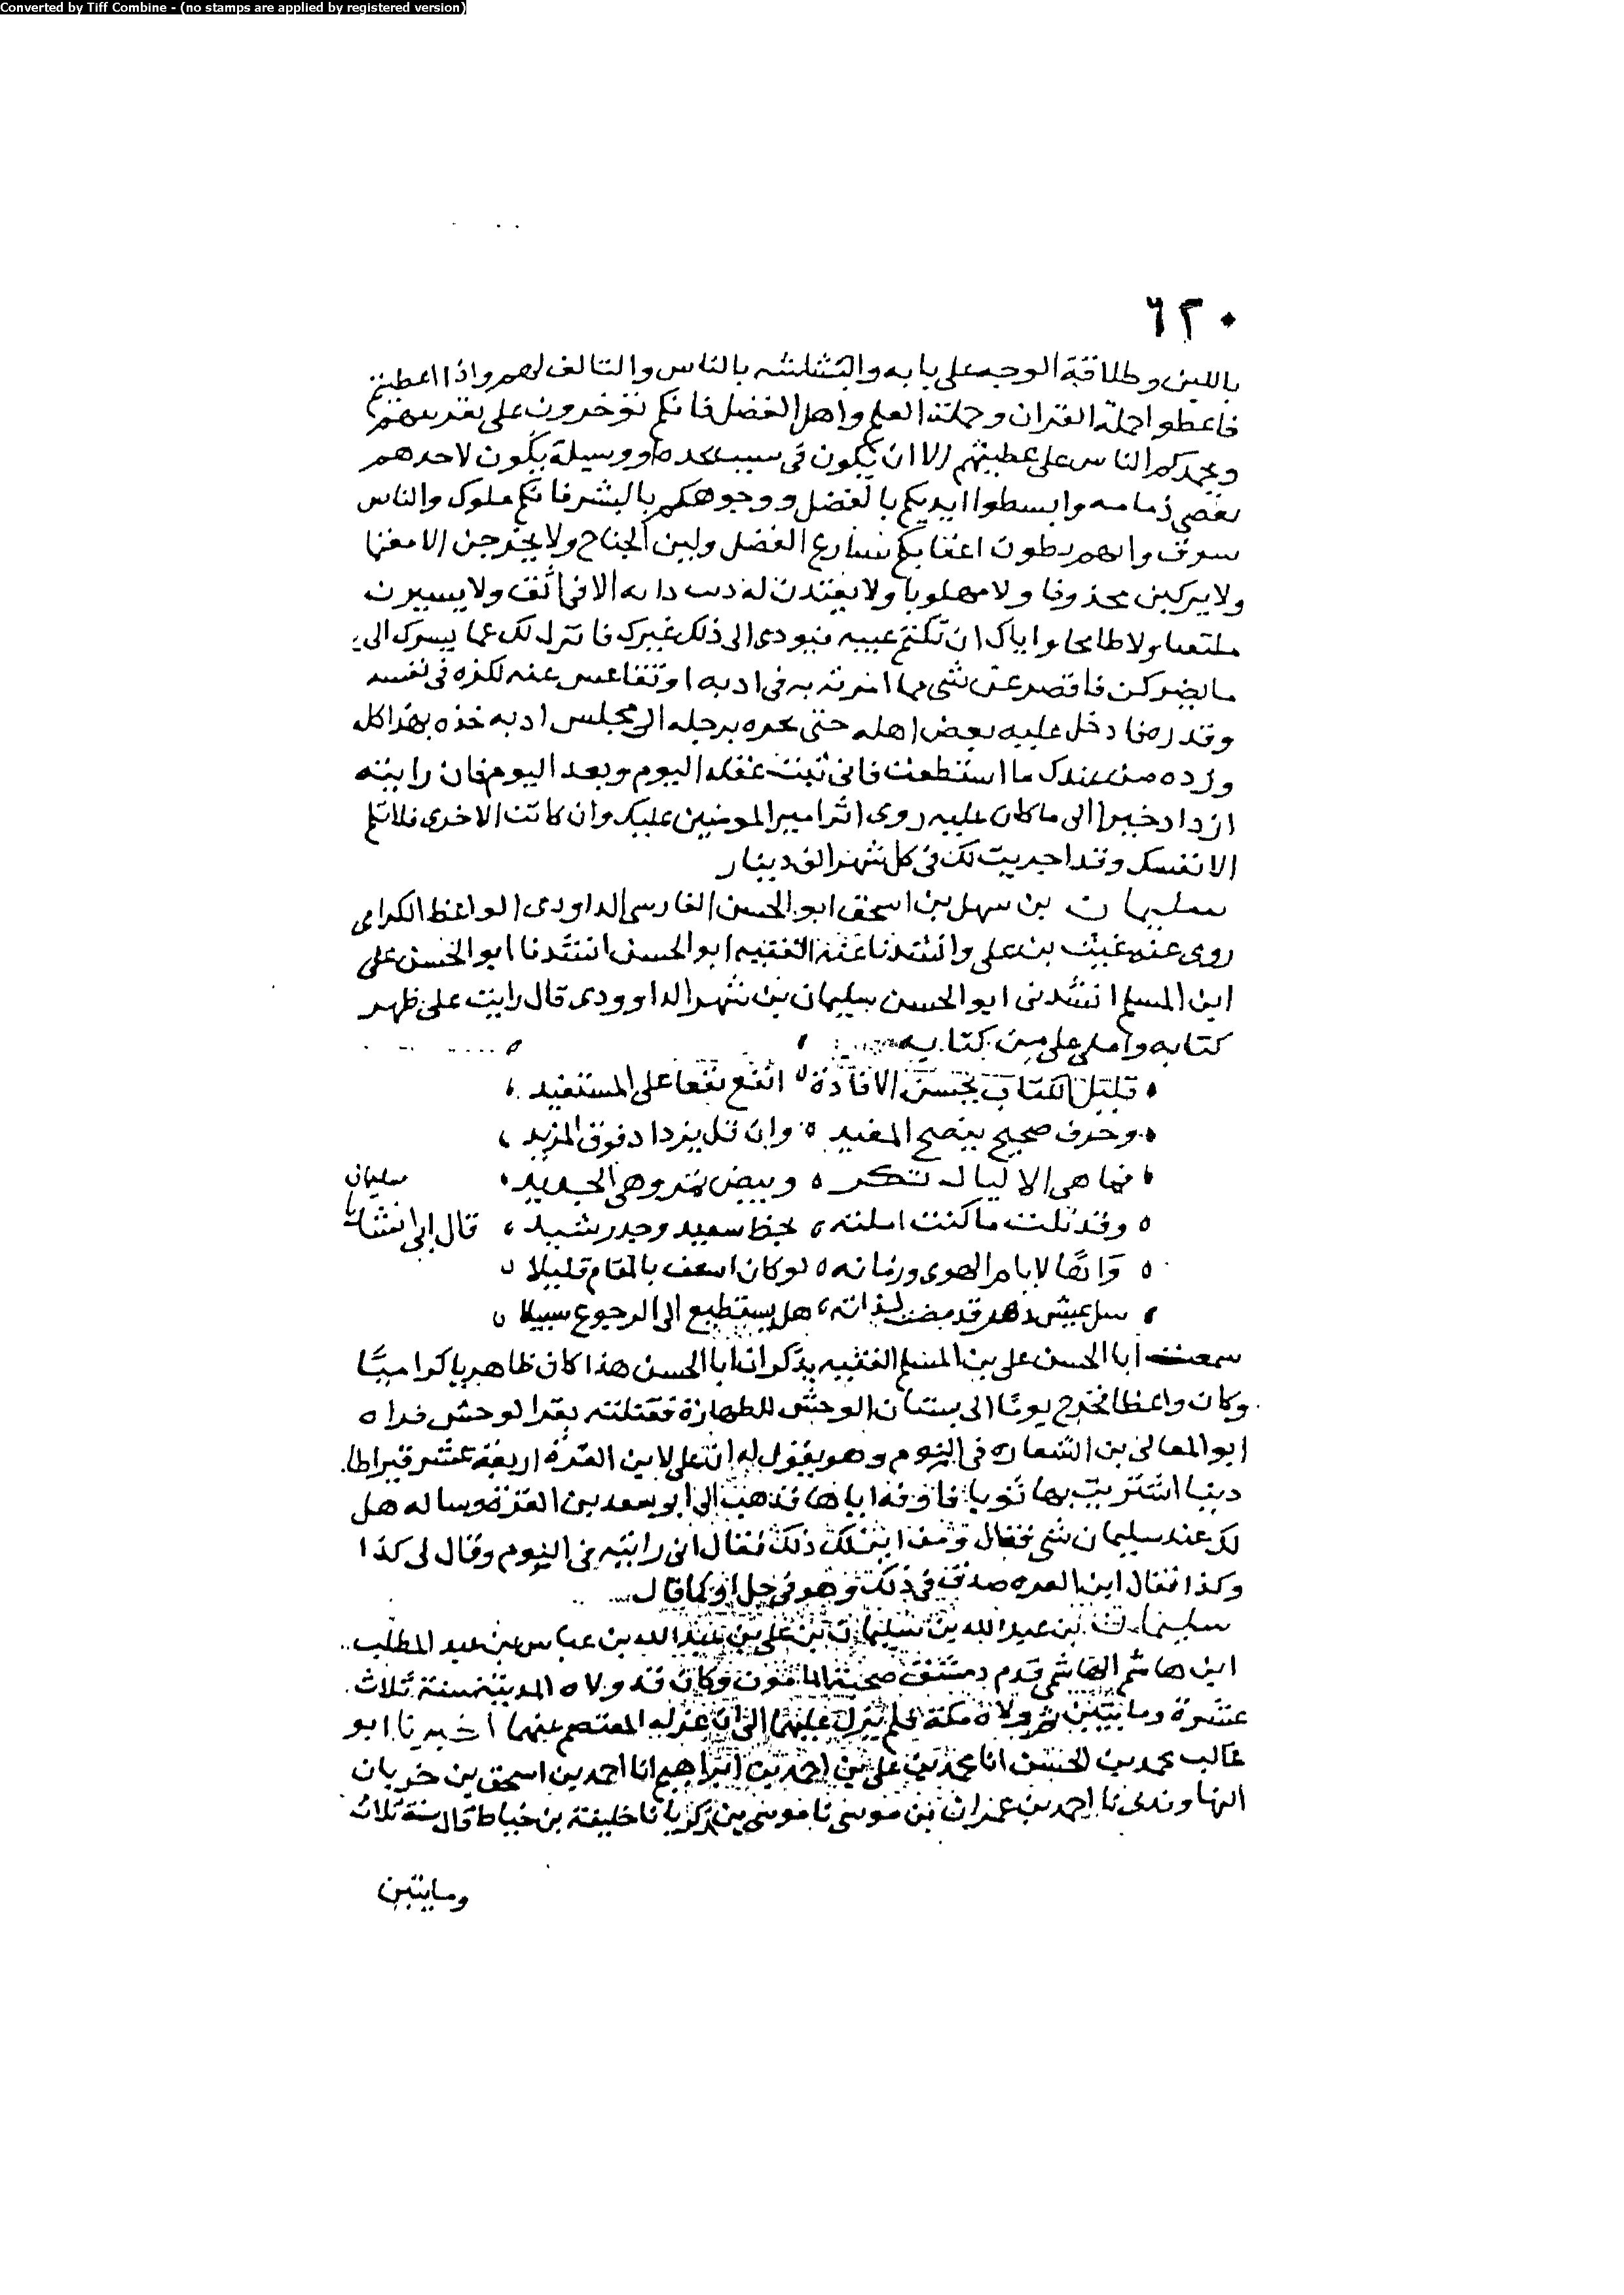 Converted by Tiff Combine - (no stamps are applied by registered version)
٦٢٠
باللين وطلاقة الوجه على بابه والبشاشة بالناس والتالف لهم واذا اعطيتم
فاعطوا حملة القران وحملة العلم واهل الفضل فانكم تؤخرون على
ويحمدكم الناس على عطيتهم الا ان يكون في سبب او وسيلة يكون لاحدهم
ذمامه وابسطوا ايديكم بالفضل ووجوهكم بالبشر فانكم ملوك والناس
سوق وانهم اعقابكم الفضل ولين الجناح ولا يخرجن الا
ولا يركبن محذوفا ولا مهلوبا ولا دابه الا في ولا يسيرن
ملتفتا ولا طامحا واياك ان تكتم عيبه فيودى الى ذلك غيرك فاترك لك عما يسرك الى
ما يضركن فاقصر عن شى مما امرته به في ادبه او تقاعس عنه لكزه في نفسه
وقد دخل عليه بعض اهله حتى برجله الى مجلس ادبه خذه بهذا كله
وزده من عندك ما استطعت فانى اليوم وبعد اليوم فان رايته
ازداد خيرا الى ما كان عليه روى اثر امير المومنين عليك وان كانت الاخرى فلا تلم
الا نفسك وقد اجريت لك في كل شهر الف دينار
سليمان بن سهل بن اسحق ابو الحسن الفارسى الداودى الواعظ الكرامى
روى عنه غيث بن على وانشدنا عنه الفقيه ابو الحسن انشدنا ابو الحسن على
ابن المسلم انشدنى ابو الحسن سليمان بن الداوودى قال رايت على ظهر
كتابه واملى على من كتابه
قليل الكتاب بحسن الافادة انفع نفعا على المستفيد
وحرف صحيح بنصح المفيد وان قل يزداد فوق المزيد
فما هى الا ليال تكر وبيض تمر وهى الجديد
وقد نلت ما كنت املته بحظ سعيد وجد رشيد قال لى انشدنا سليمان
واها لايام الهوى وزمانه لو كان اسعف بالمقام قليلا
سل عيش دهر قد مضت لذاته هل يستطيع الى الرجوع سبيلا
سمعت ابا الحسن على بن المسلم الفقيه يذكر ان ابا الحسن هذا كان ظاهريا كراميا
وكان واعظا فخرج يوما الى بستان الوحش للطهارة فقتلته بقر الوحش فراه
ابو المعالى بن الشعاره في النوم وهو يقول له ان على لابن القزة اربعة عشر قيراطا
دينا اشتريت بها ثوبا فاوفه اياها فذهب الى ابو سعد بن القزة وساله هل
لك عند سليمان شى فقال ومن اين لك ذلك فقال انى رايته في النوم وقال لى كذا
وكذا فقال ابن القزه صدق في ذلك وهو في حل او كما قال
سليمان بن عبد الله بن سليمان بن على بن عبد الله بن عباس بن عبد المطلب
ابن هاشم الهاشمى قدم دمشق صحبة المامون وكان قد ولاه المدينة سنة ثلاث
عشرة ومايتين ثم ولاه مكة فلم يزل عليهما الى ان عزله المعتصم عنهما اخبرنا ابو
غالب محمد بن الحسن انا محمد بن على بن احمد بن ابراهيم انا احمد بن اسحق بن خربان
النهاوندى نا احمد بن عمران بن موسى نا موسى بن زكريا نا خليفة بن خياط قال سنة ثلاث
ومايتين